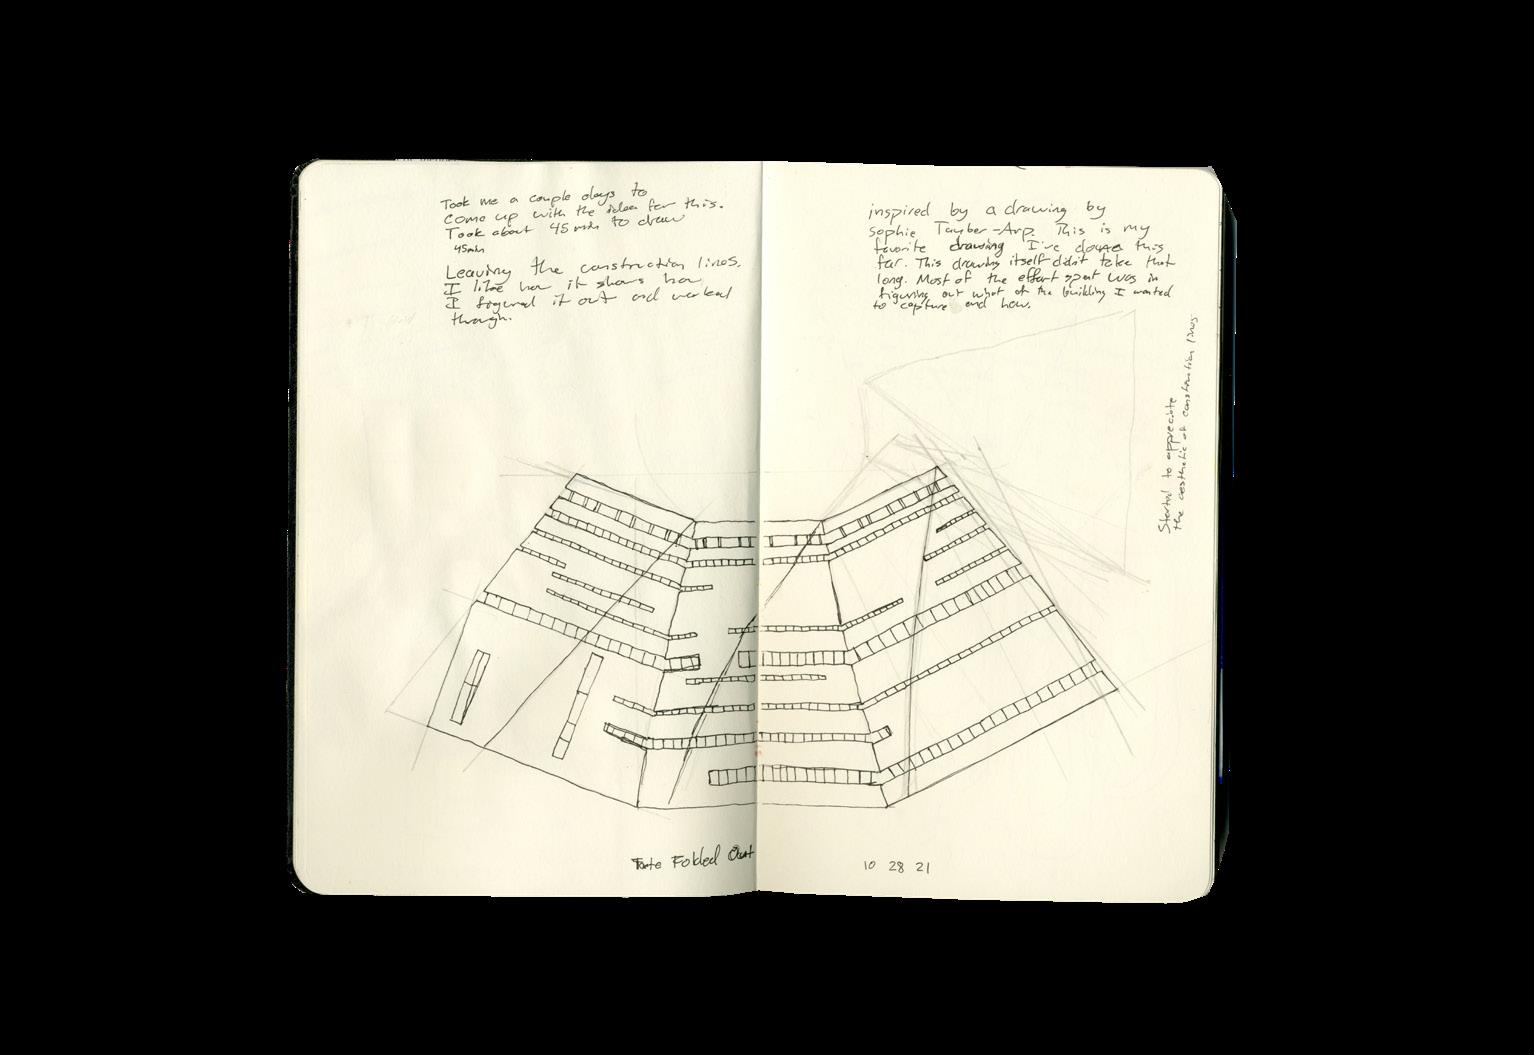 Took me a couple days to
come up with the idea for this.
Took about 45 min to draw
45min
Leaving the construction lines.
I like how it shows how
I figured it out and worked
though.
inspired by a drawing by
Sophie Tayber-Arp. This is my
favorite drawing I've done this
far. This drawing itself didn't take that
long. Most of the effort spent was in
figuring out what of the building I wanted
to capture and how.
Started to appreciate
the aesthetic of construction lines
Tate Folded Out
10 28 21